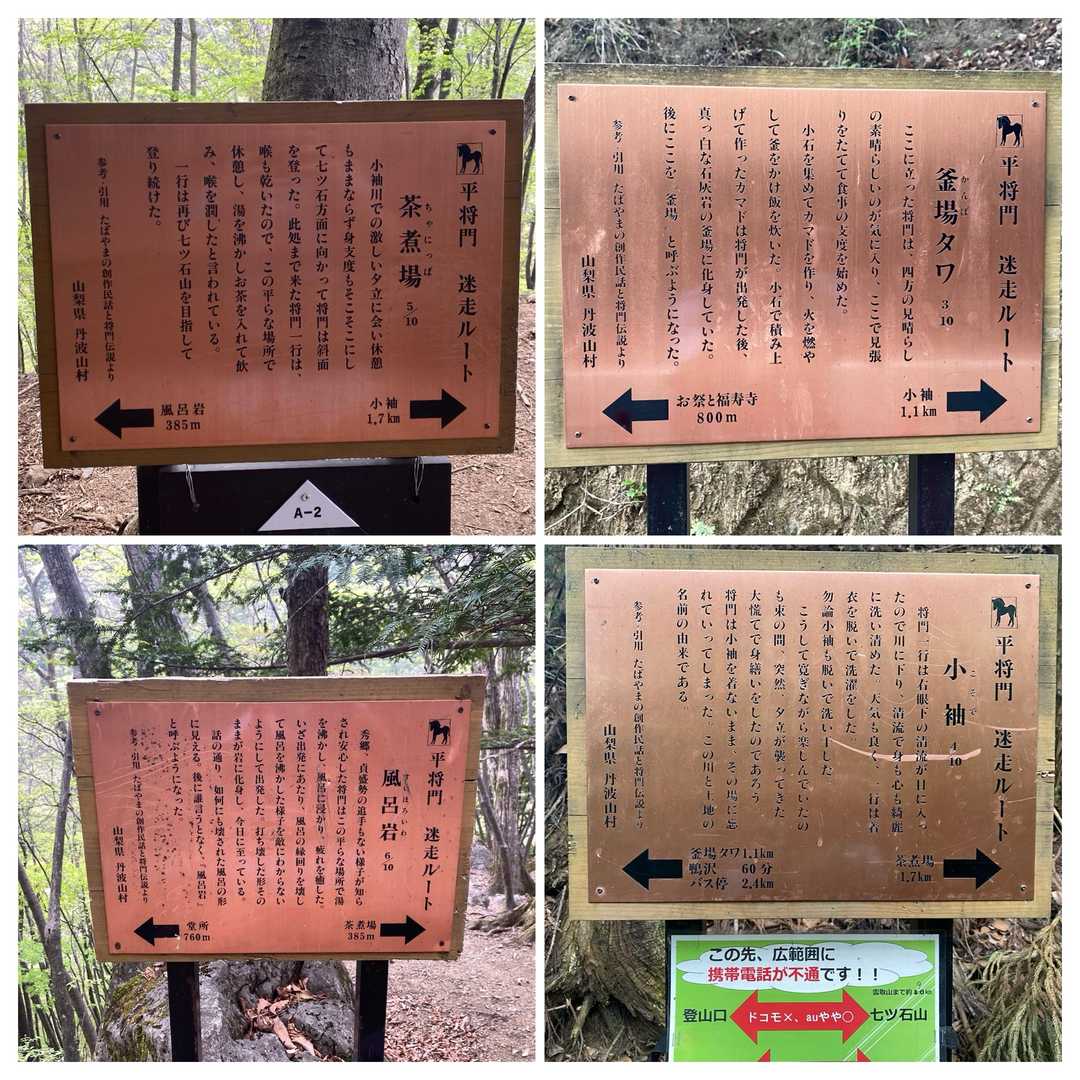 平将門 迷走ルート
ちゃにっぱ
茶煮場 5/10
小袖川での激しい夕立に会い休憩
もままならず身支度もそこそこにし
て七ツ石方面に向かって将門は斜面
を登った。此処まで来た将門一行は、
喉も乾いたので、この平らな場所で
休憩し、湯を沸かしお茶を入れて飲
み、喉を潤したと言われている。
一行は再び七ツ石山を目指して
登り続けた。
参考・引用 たばやまの創作民話と将門伝説より
山梨県 丹波山村
風呂岩
385m
小袖
1.7km
A-2
平将門 迷走ルート
かんば
釜場タワ 3/10
ここに立った将門は、四方の見晴らし
の素晴らしいのが気に入り、ここで見張
りをたてて食事の支度を始めた。
小石を集めてカマドを作り、火を燃や
して釜をかけ飯を炊いた。小石で積み上
げて作ったカマドは将門が出発した後、
真っ白な石灰岩の釜場に化身していた。
後にここを「釜場」と呼ぶようになった。
参考・引用 たばやまの創作民話と将門伝説より
山梨県 丹波山村
お祭と福寿寺
800m
小袖
1.1km
平将門 迷走ルート
風呂岩 6/10
秀郷、貞盛勢の追手もない様子が知ら
され安心した将門はこの平らな場所で湯
を沸かし、風呂に浸かり、疲れを癒した。
いざ出発にあたり、風呂の縁回りを壊し
て風呂を沸かした様子を敵にわからない
ようにして出発した。打ち壊した形その
ままが岩に化身し、今日に至っている。
話の通り、如何にも壊された風呂の形
に見える。後に誰言うとなく、「風呂岩」
と呼ぶようになった
参考・引用 たばやまの創作民話と将門伝説より
山梨県 丹波山村
堂所
760m
茶煮場
385m
平将門 迷走ルート
こそで
小袖 4/10
将門一行は右眼下の清流が目に入っ
たので川に下り、清流で身も心も綺麗
に洗い清めた。天気も良く、一行は着
衣を脱いで洗濯をした。
勿論小袖も脱いで洗い干した。
こうして寛ぎながら楽しんでいたの
も束の間、突然、夕立が襲ってきた
大慌てで身繕いをしたのであろう
将門は小袖を着ないまま、その場に忘
れていってしまった。この川と土地の
名前の由来である。
参考・引用 たばやまの創作民話と将門伝説より
山梨県 丹波山村
釜場タワ 1.1km
鴨沢 60分
バス停 2.4km
茶煮場
1.7km
この先、広範囲に
携帯電話が不通です！！
登山口
ドコモ×、auやや○
七ツ石山